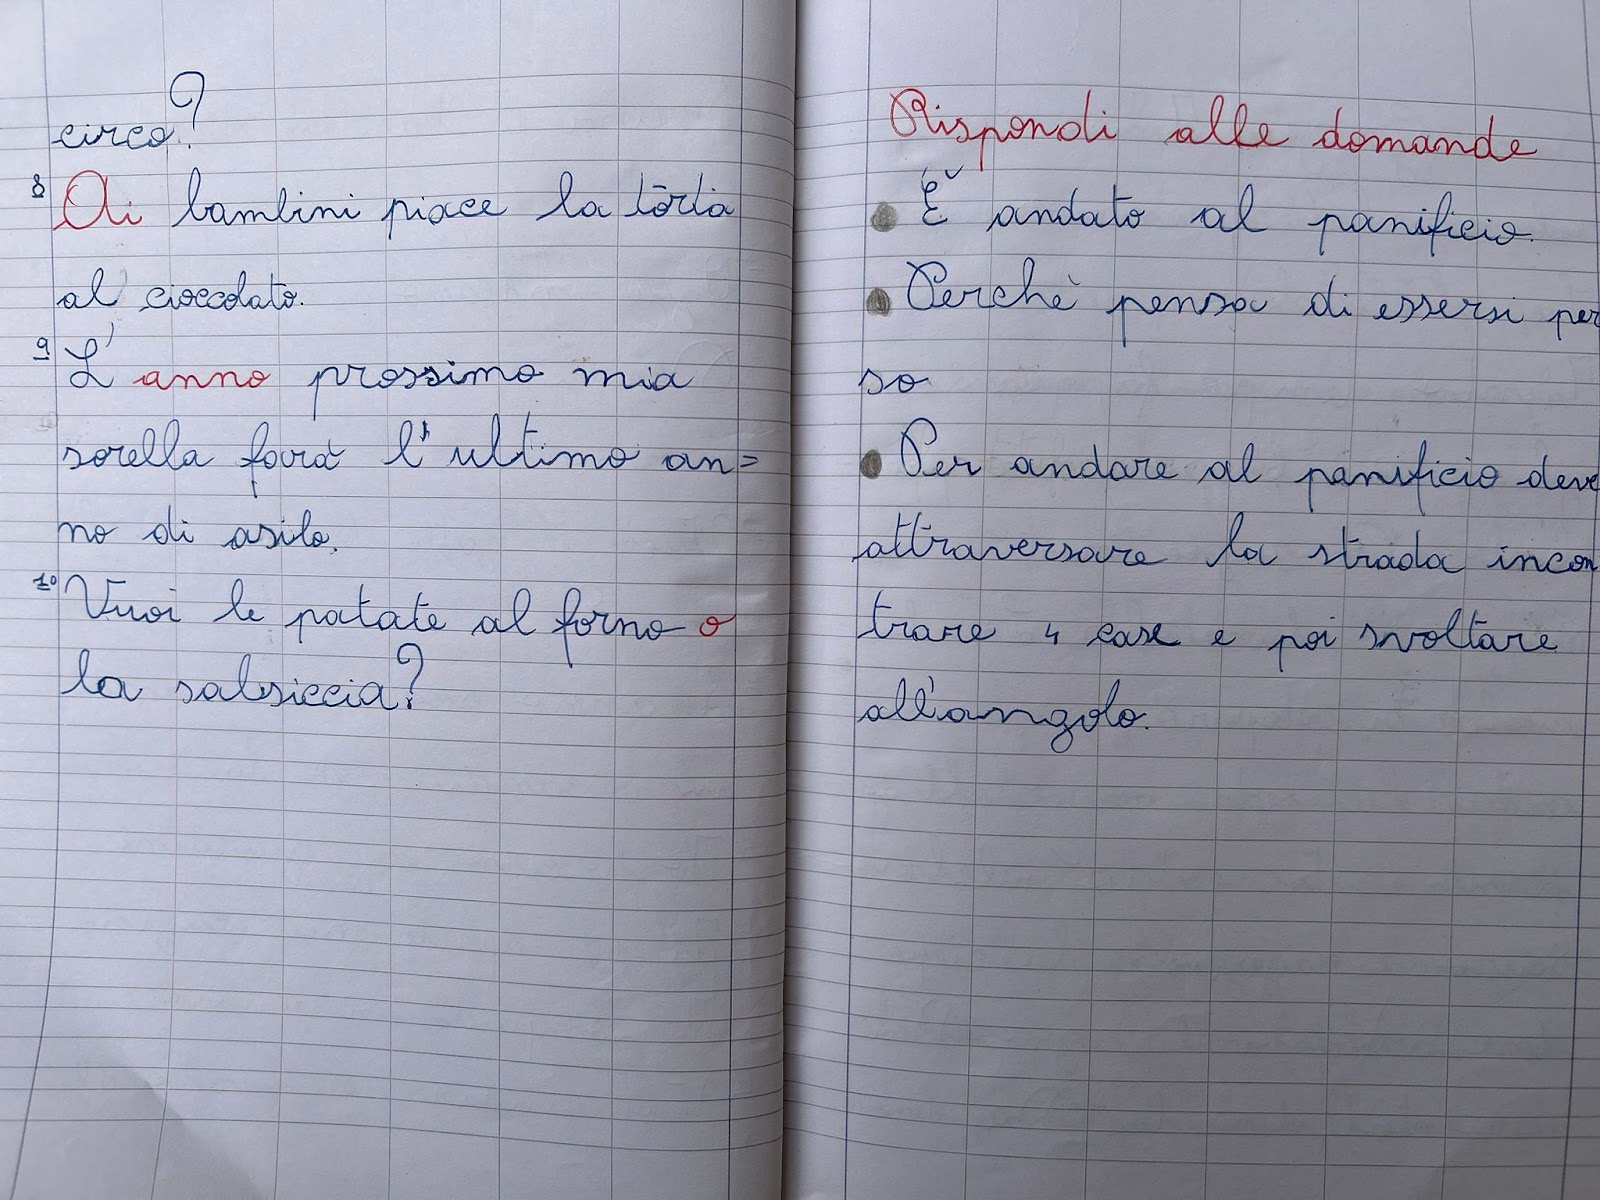 circo?
8 Ai bambini piace la torta
al cioccolato.
9 L'anno prossimo mia
sorella farà l'ultimo an=
no di asilo.
10 Vuoi le patate al forno o
la salsiccia?
Rispondi alle domande
È andato al panificio.
Perchè pensa di essersi per
so
Per andare al panificio deve
attraversare la strada incon
trare 4 case e poi svoltare
all'angolo.